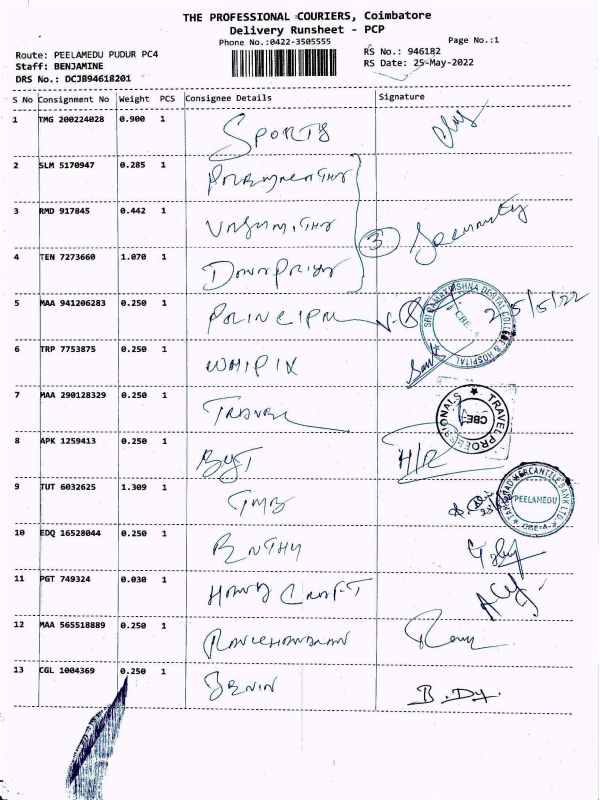 THE PROFESSIONAL COURIERS, Coimbatore
Delivery Runsheet - PCP
Phone No.:0422-3505555
Page No.:1
Route: PEELAMEDU PUDUR PC4
RS No.: 946182
Staff: BENJAMINE
RS Date: 25-May-2022
DRS No.: DCJB94618201
S No Consignment No Weight PCS Consignee Details Signature
1 TMG 200224028 0.900 1 SPORTS
2 SLM 5170947 0.285 1
3 RMD 917845 0.442 1 3 Security
4 TEN 7273660 1.070 1 DANAPRIYA
5 MAA 941206283 0.250 1 PRINCIPAL 25/5/22
SRI RAMAKRISHNA DENTAL COLLEGE & HOSPITAL CBE
6 TRP 7753875 0.250 1 WHIPIX
7 MAA 290128329 0.250 1 TRAVEL
TRAVEL PROFESSIONALS CBE
8 APK 1259413 0.250 1 H/R
9 TUT 6032625 1.309 1 TMB
TAMILNAD MERCANTILE BANK LTD. PEELAMEDU CBE-4
10 EDQ 16528044 0.250 1
11 PGT 749324 0.030 1 HOMES CRAFT
12 MAA 565518889 0.250 1 RAVICHANDRAN
13 CGL 1004369 0.250 1 JENIN B.Dy.